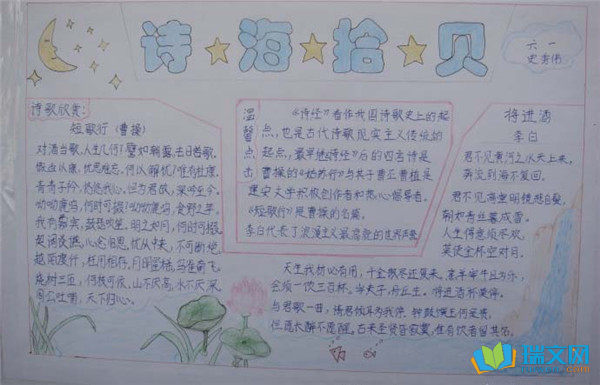 诗海拾贝
六一
诗歌欣赏:
短歌行(曹操)
对酒当歌,人生几何!譬如朝露,去日苦多。
慨当以慷,忧思难忘。何以解忧?唯有杜康。
青青子衿,悠悠我心。但为君故,沉吟至今。
呦呦鹿鸣,食野之苹。
我有嘉宾,鼓瑟吹笙。明之如月,何时可掇
契阔谈讌,心念旧恩。忧从中来,不可断绝
越陌度阡,枉用相存。月明星稀,乌鹊南飞
绕树三匝,何枝可依,山不厌高,水不厌深
周公吐哺,天下归心。
温馨点击
《诗经》看作我国诗歌史上的起
点,也是古代诗歌现实主义传统的
起点,最早地《诗经》后的四言诗是
曹操的《短歌行》与其子曹丕曹植是
建安文学积极创作者和热心倡导者。
《短歌行》是曹操的名篇。
李白代表了浪漫主义最高
将进酒
李白
君不见黄河之水天上来,
奔流到海不复回。
君不见高堂明镜悲白发,
朝如青丝暮成雪。
人生得意须尽欢,
莫使金杯空对月。
天生我材必有用,千金散尽还复来。烹羊宰牛且为乐,
会须一饮三百杯。岑夫子,丹丘生。将进酒杯莫停。
与君歌一曲,请君侧耳为我倾听。钟鼓馔玉何足贵,
但愿长醉不愿醒。古来圣贤皆寂寞,惟有饮者留其名。
瑞文网